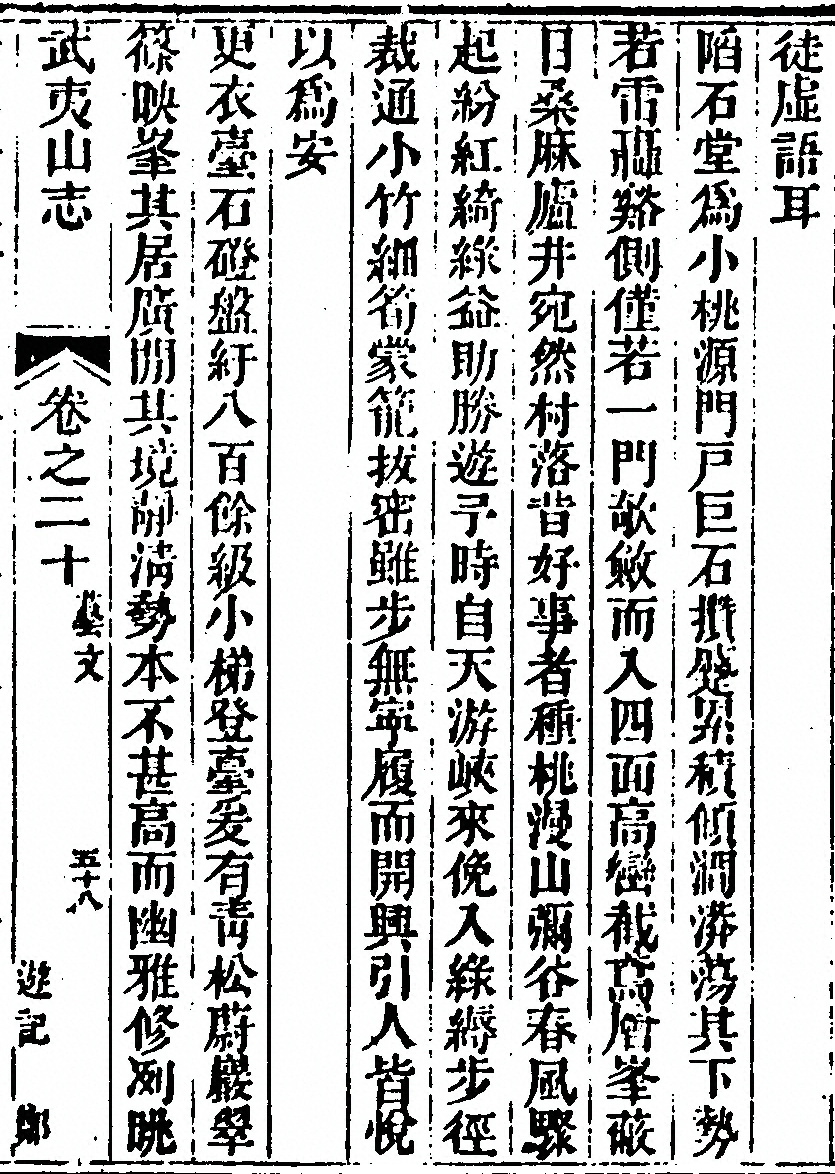 徒虛語耳
陷石堂爲小桃源門戸巨石攢𨅬累積傾澗漭蕩其下勢
若雷礚谿側僅若一門欹斂而入四面高巒截嶌層峯蔽
日桑麻廬井宛然村落昔好事者種桃漫山彌谷春風驟
起紛紅綺綠益助勝遊予時自天游峽來俛入綠縟步徑
裁通小竹細筍蒙籠拔密雖步無寧履而開興引人皆悅
以爲安
更衣臺石磴盤紆八百餘級小梯登臺爰有靑松蔚巖翠
篠映峯其居廣閒其境靜淸勢本不甚高而幽雅修列眺
武夷山志 卷之二十 藝文 五十八 遊記 鄭